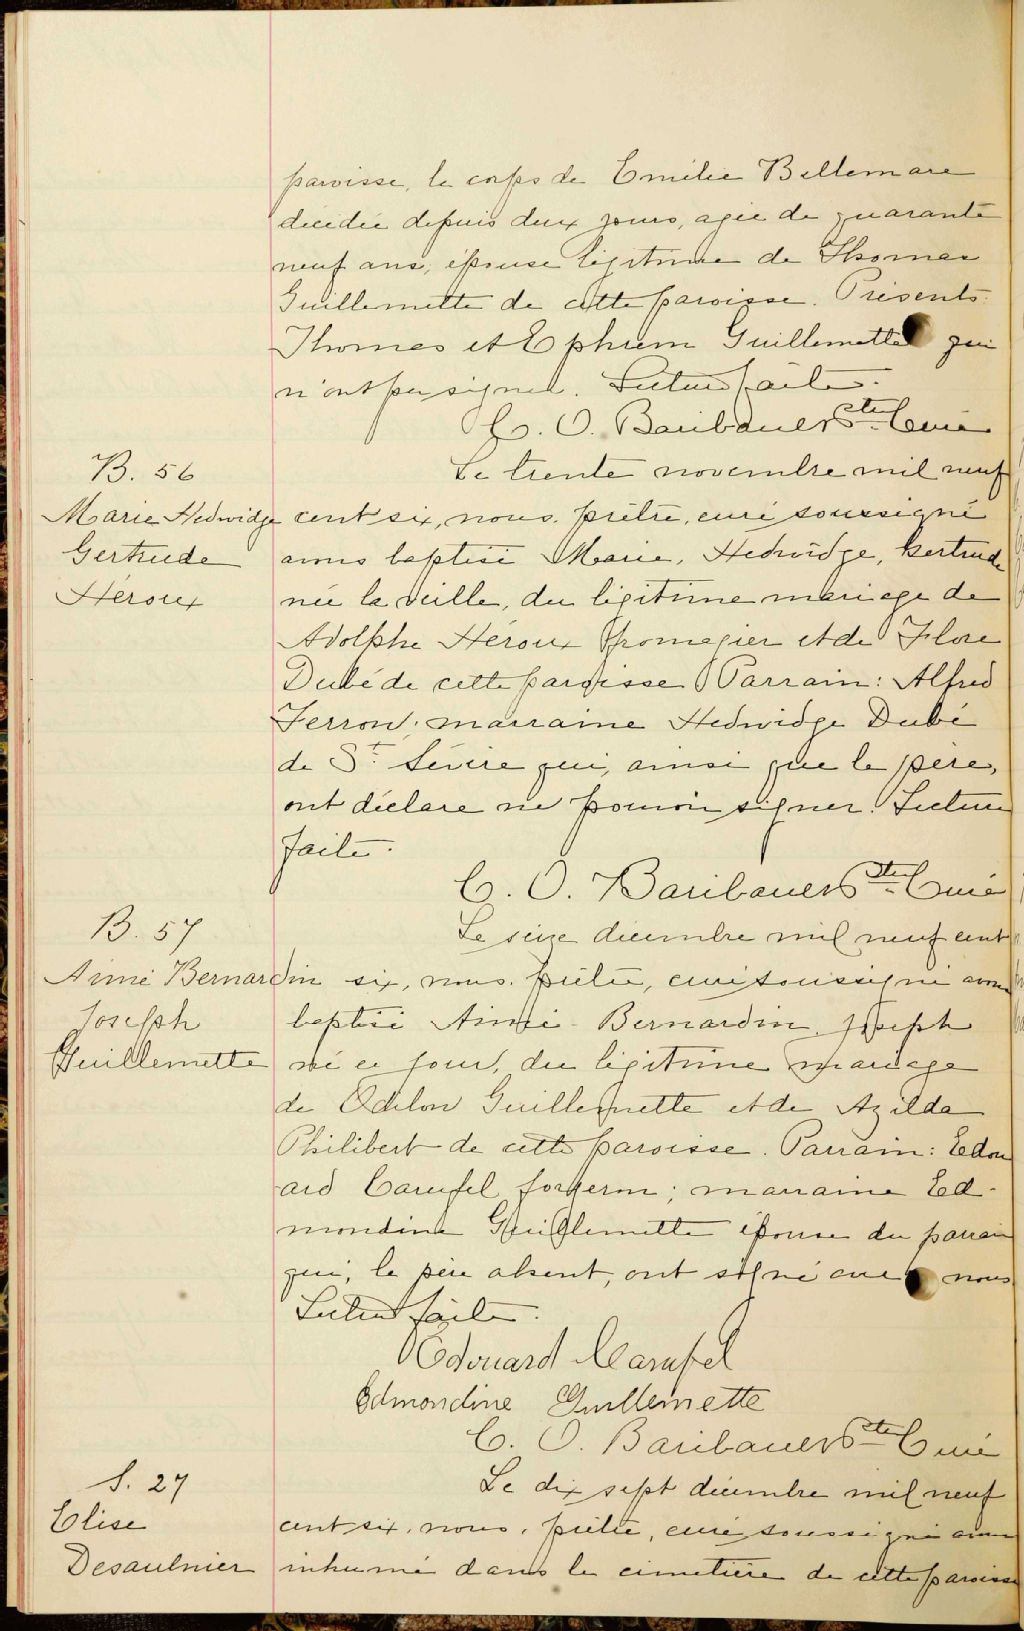 paroisse, le corps de Emélie Bellemare
décédée depuis deux jours, agée de quarante
neuf ans, épouse légitime de Thomas
Guillemette de cette paroisse. Présents
Thomas et Ephrem Guillemette qui
n'ont pu signer. Lecture faite.
C. O. Baribault Ptre Curé
B. 56
Marie Hedwidge
Gertrude
Héroux
Le trente novembre mil neuf
cent six, nous, prêtre, curé soussigné
avons baptisé Marie, Hedwidge, Gertrude
née la veille, du légitime mariage de
Adolphe Héroux fromagier et de Flore
Dubé de cette paroisse Parrain: Alfred
Ferron; marraine Hedwidge Dubé
de St. Sévère qui, ainsi que le père,
ont déclaré ne pouvoir signer. Lecture
faite.
C. O. Baribault Ptre Curé
B. 57
Aimé Bernardin
Joseph
Guillemette
Le seize décembre mil neuf cent
six, nous, prêtre, curé soussigné avons
baptisé Aimé Bernardin Joseph
né ce jour, du légitime mariage
de Odilon Guillemette et de Azilda
Philibert de cette paroisse. Parrain: Edou
ard Carufel forgeron; marraine Ed-
mondine Guillemette épouse du parrain
qui, le père absent, ont signé avec nous
Lecture faite.
Edouard Carufel
Edmondine Guillemette
C. O. Baribault Ptre Curé
S. 27
Elise
Desaulnier
Le dix sept décembre mil neuf
cent six, nous, prêtre, curé soussigné avons
inhumé dans le cimetière de cette paroisse